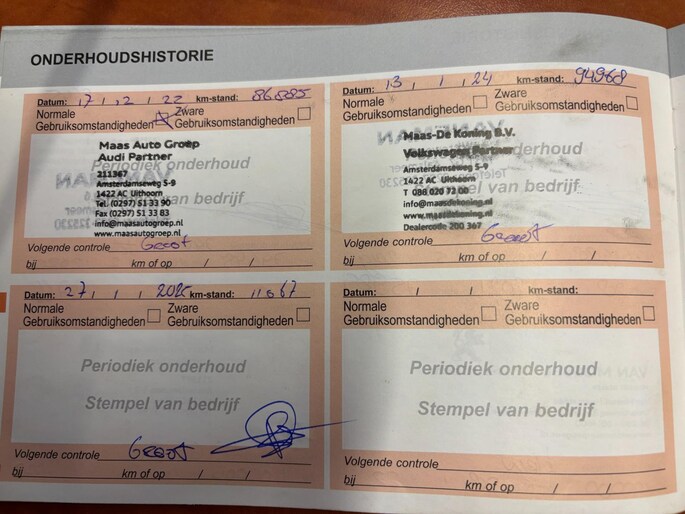 ONDERHOUDSHISTORIE
Datum: 17 / 2 / 22 km-stand: 86885
Normale Gebruiksomstandigheden Zware Gebruiksomstandigheden
Maas Auto Groep
Audi Partner
Periodiek onderhoud
211367
Amsterdamseweg 5-9
1422 AC Uithoorn
Stempel van bedrijf
Tel. (0297) 51 33 90
Fax (0297) 51 33 83
info@maasautogroep.nl
www.maasautogroep.nl
Volgende controle
bij km of op / /
Datum: 13 / 1 / 24 km-stand: 94968
Normale Gebruiksomstandigheden Zware Gebruiksomstandigheden
Maas-De Koning B.V.
Volkswagen Partner
Periodiek onderhoud
Amsterdamseweg 5-9
1422 AC Uithoorn
T 088 020 72 00
Stempel van bedrijf
info@maasdekoning.nl
www.maasdekoning.nl
Dealercode 200 367
Volgende controle
bij km of op / /
Datum: 27 / 1 / 2025 km-stand:
Normale Gebruiksomstandigheden Zware Gebruiksomstandigheden
Periodiek onderhoud
Stempel van bedrijf
Volgende controle
bij km of op / /
Datum: / / km-stand:
Normale Gebruiksomstandigheden Zware Gebruiksomstandigheden
Periodiek onderhoud
Stempel van bedrijf
Volgende controle
bij km of op / /